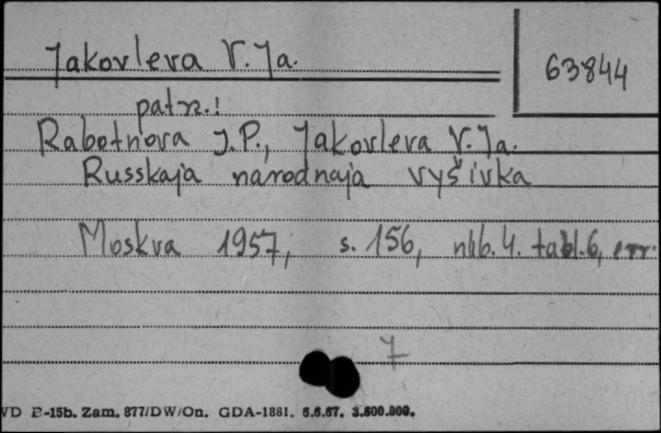 Jakovleva V. Ja.
63844
patrz.:
Rabotnova I.P., Jakovleva V. Ja.
Russkaja narodnaja vyšivka
Moskva 1957, s. 156, nlb. 4. tabl. 6, err.
7
VD D-15b. Zam. 877/DW/On. GDA-1881. 6.6.67. 3.500.000.